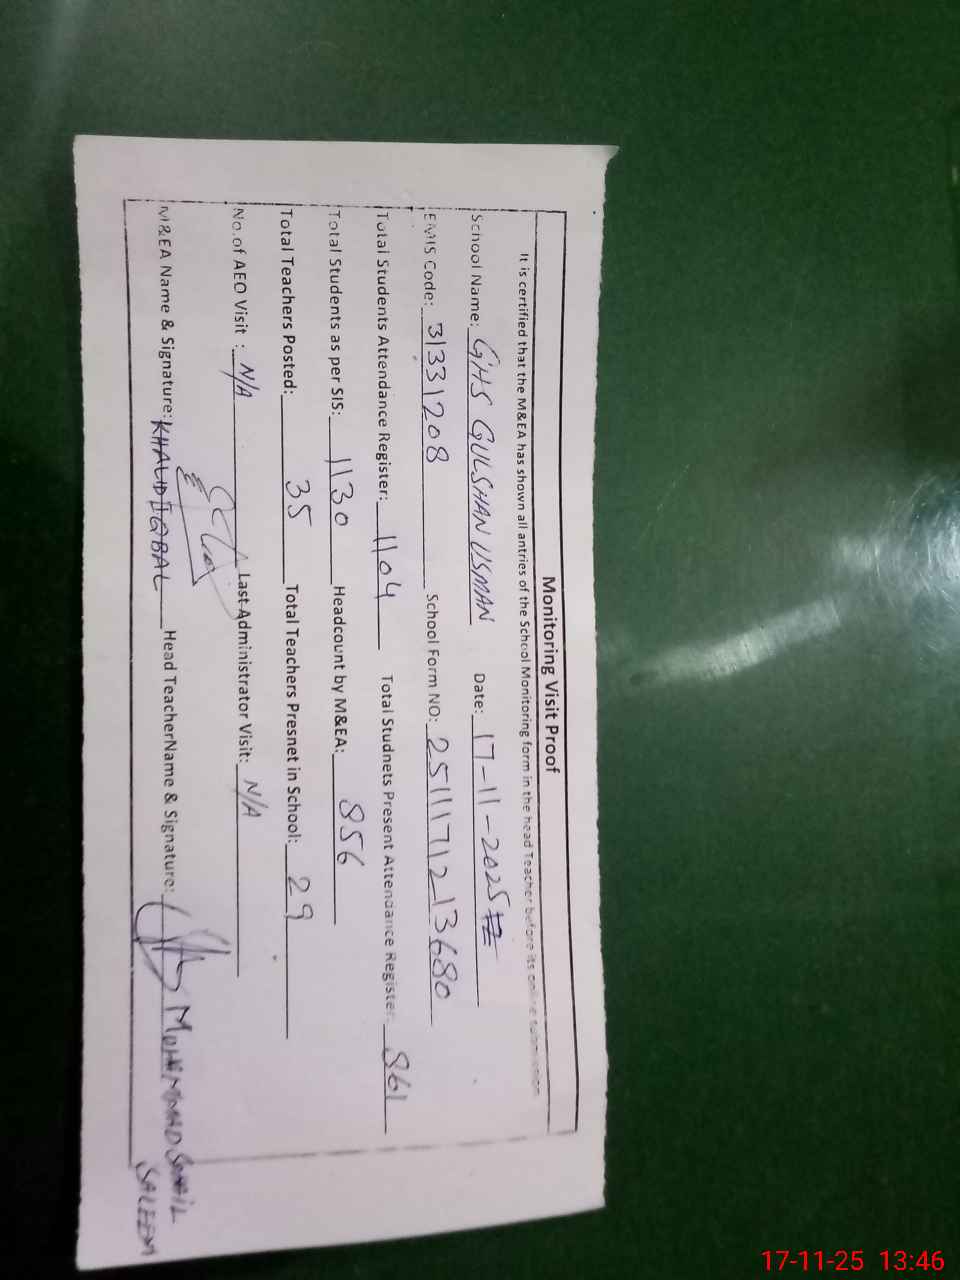 Monitoring Visit Proof
It is certified that the M&EA has shown all antries of the School Monitoring form in the head Teacher before its online submission
School Name: GHS GULSHAN USMAN Date: 17-11-2025
EMIS Code: 31331208 School Form NO: 2511171213680
Total Students Attendance Register: 1104 Total Studnets Present Attendance Register: 861
Total Students as per SIS: 1130 Headcount by M&EA: 856
Total Teachers Posted: 35 Total Teachers Presnet in School: 29
No.of AEO Visit : N/A Last Administrator Visit: N/A
M&EA Name & Signature: KHALID IQBAL Head TeacherName & Signature: MUHAMMAD SOHAIL
SALEEM
17-11-25 13:46